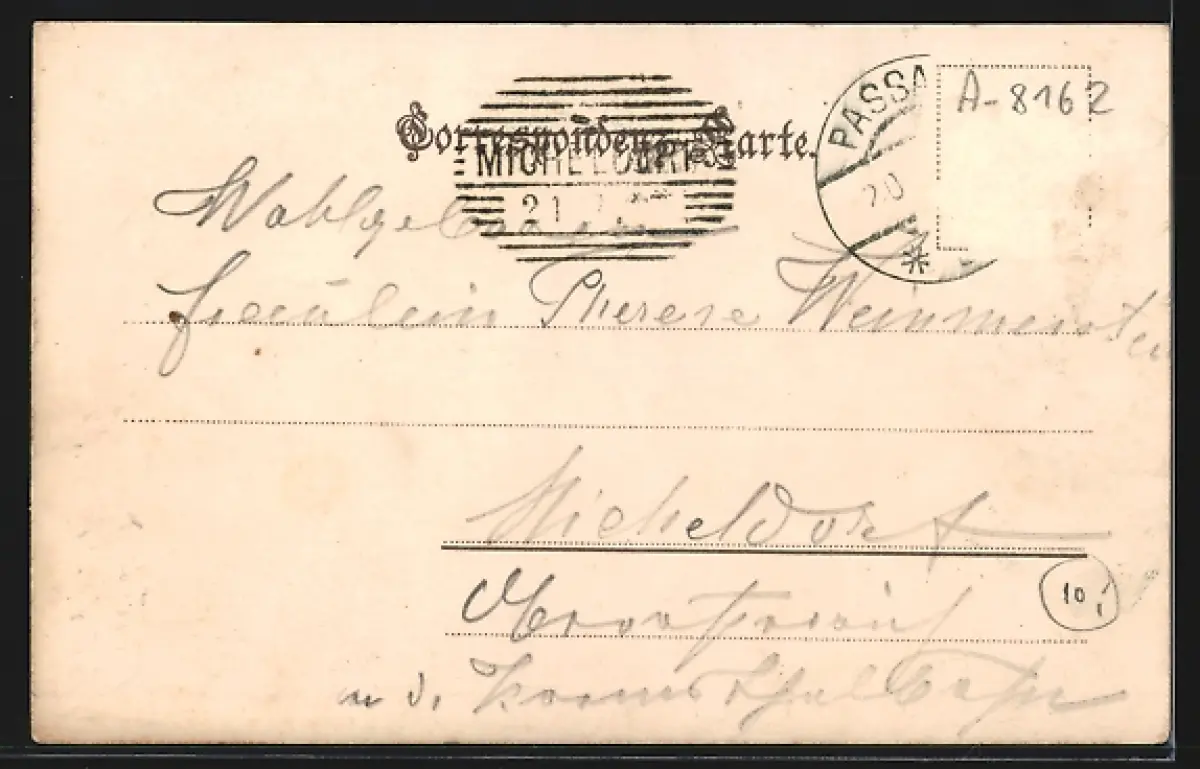 Correspondenz-Karte.
MICHELDORF
21
PASSA
20
A-8162
Wohlgeboren
Fräulein Therese Weinmeister
Micheldorf
10
a d. Kremsthalbahn